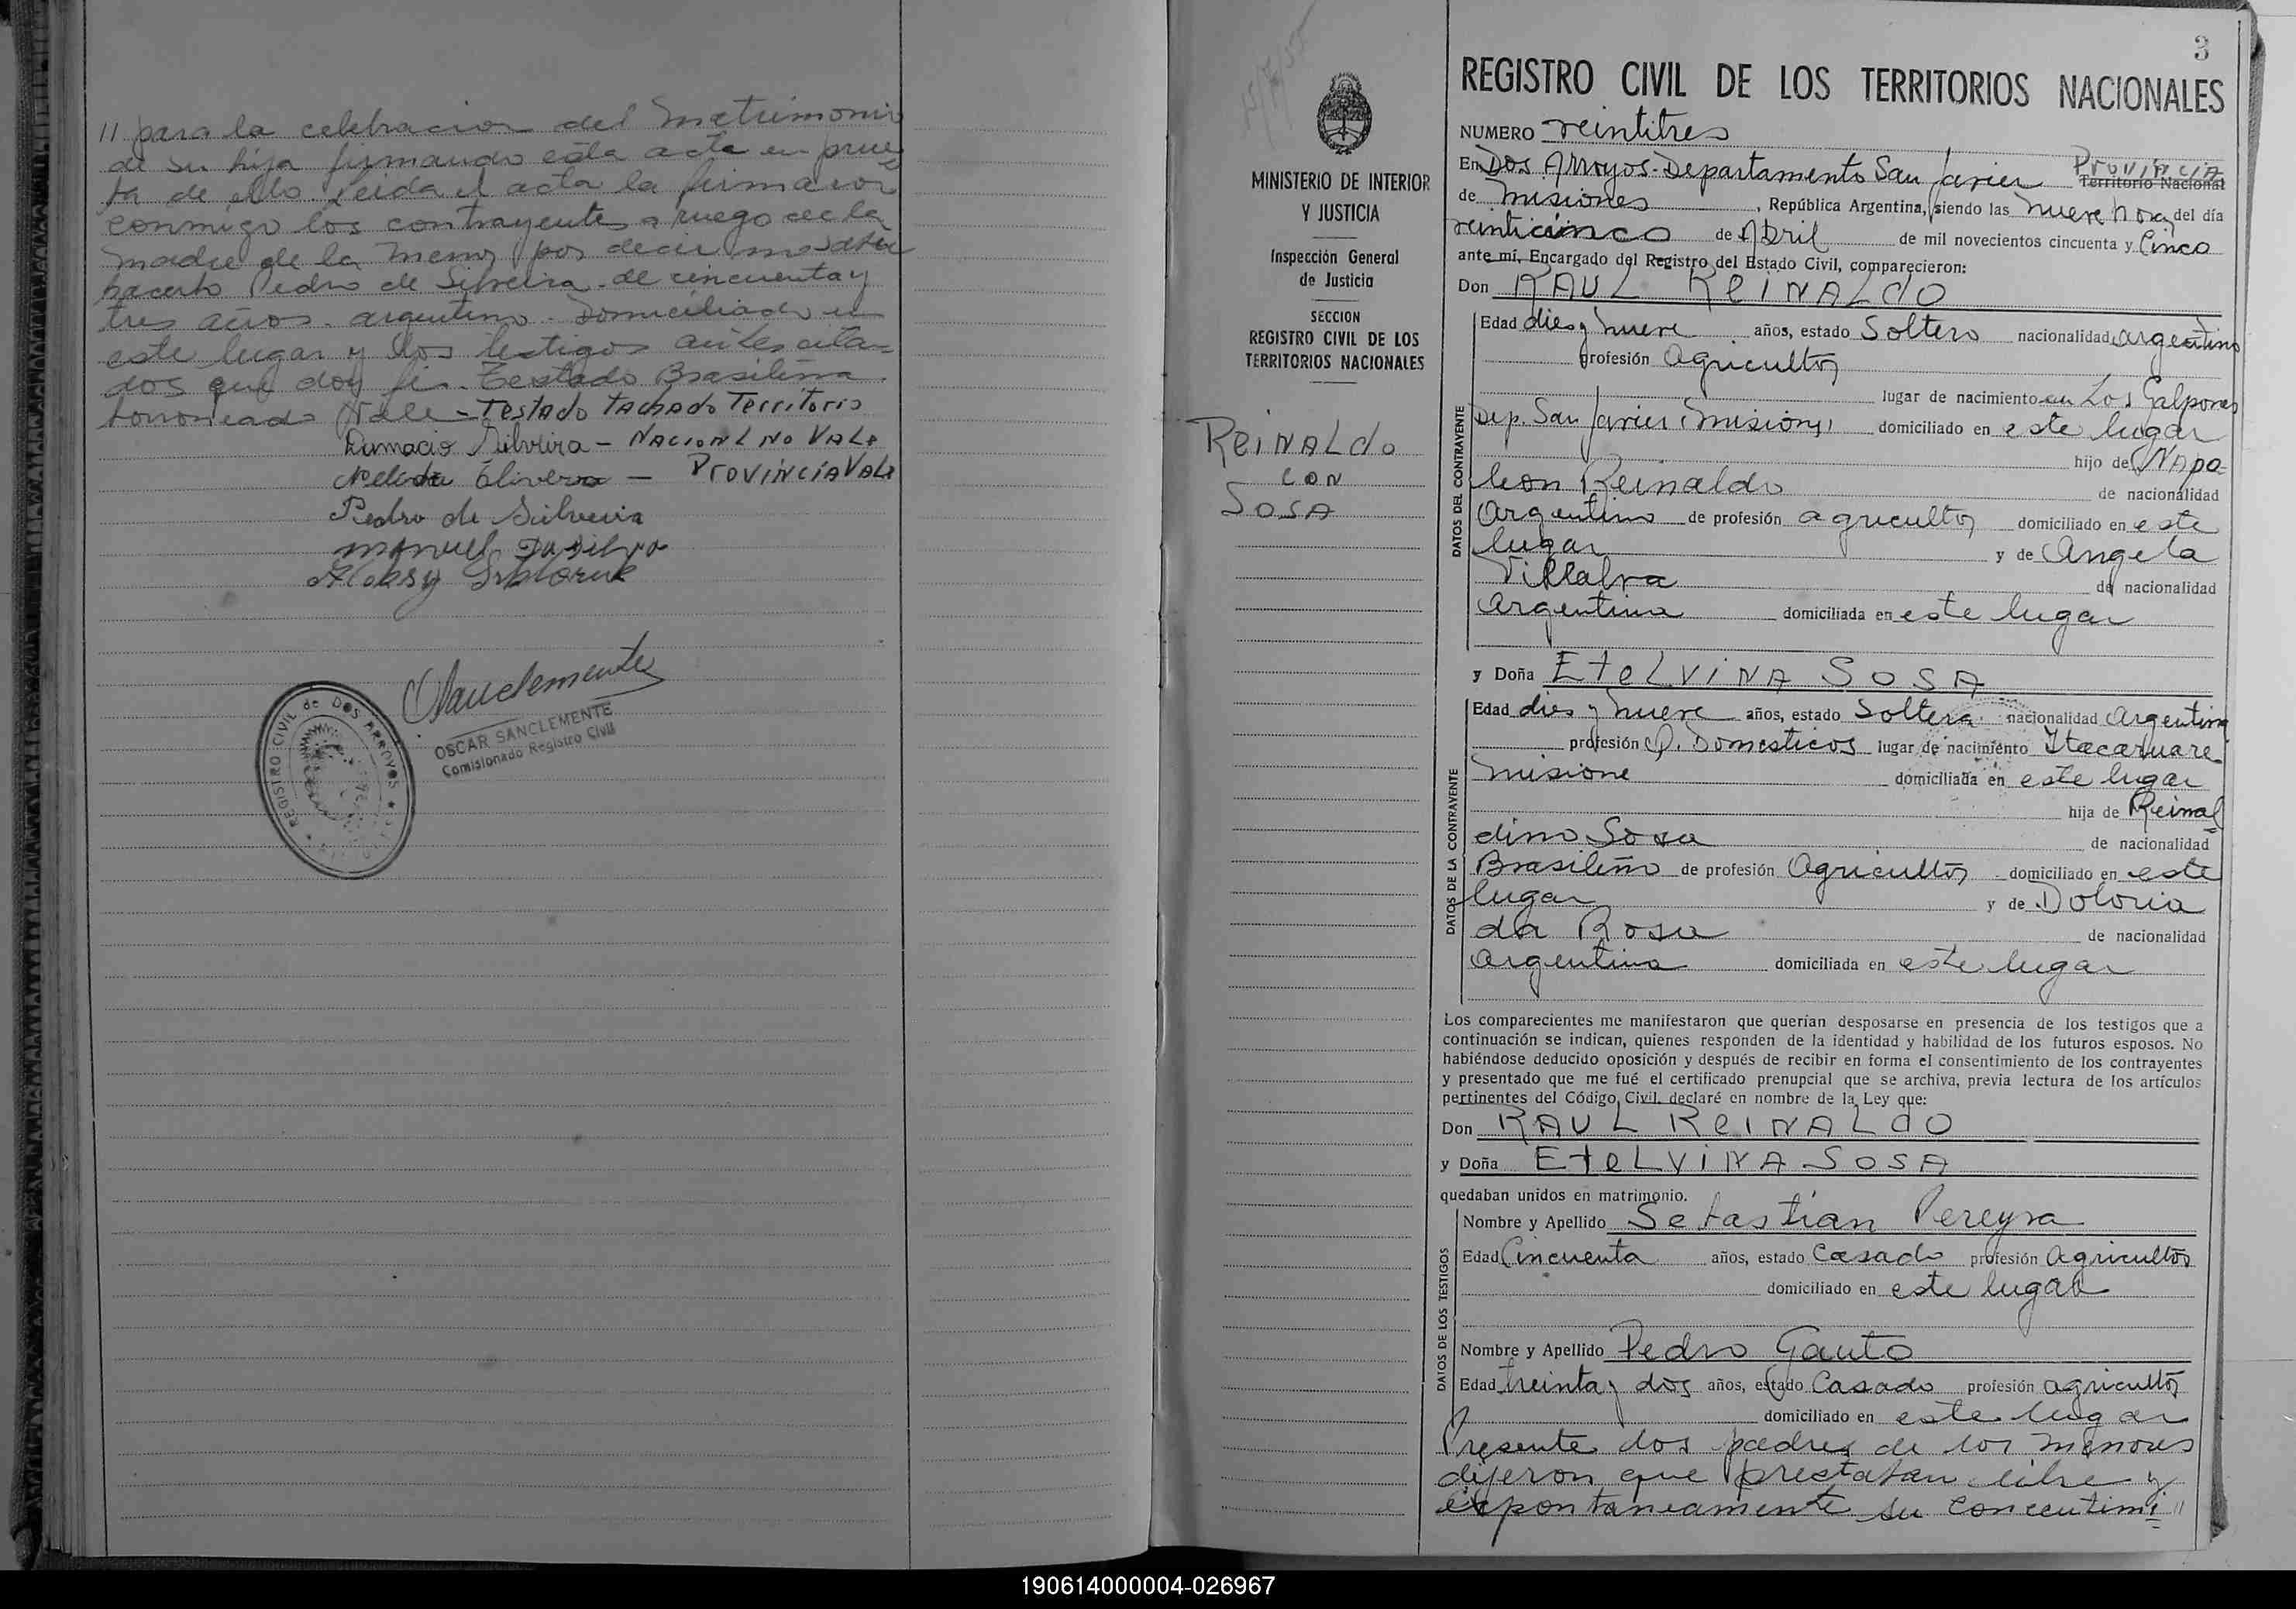 // para la celebracion del Matrimonio
de su hija firmando esta acta en prue
ba de ello. Leida el acta la firmaron
conmigo los contrayentes a ruego de la
madre de la menor por decir no saber
hacerlo Pedro de Silveira de cincuenta y
tres años. argentino. Domiciliado en
este lugar y los testigos antes cita-
dos que doy fe. Testado Brasilera
Vale - Testado tachado Territorio
Dumacio Silveira - NacionL No Vale
Nelida Olivera - Provincia Vale
Pedro de Silveira
Manuel Dasilva
Sanclemente
REGISTRO CIVIL de DOS ARROYOS
OSCAR SANCLEMENTE
Comisionado Registro Civil
3
MINISTERIO DE INTERIOR
Y JUSTICIA
Inspección General
de Justicia
SECCION
REGISTRO CIVIL DE LOS
TERRITORIOS NACIONALES
Reinaldo
con
Sosa
REGISTRO CIVIL DE LOS TERRITORIOS NACIONALES
NUMERO veintitres
Provincia
En Dos Arroyos-Departamento San Javier Territorio Nacional
de Misiones, República Argentina, siendo las nueve hora del día
veinticinco de Abril de mil novecientos cincuenta y Cinco
ante mí, Encargado del Registro del Estado Civil, comparecieron:
Don RAUL ReINALdO
DATOS DEL CONTRAYENTE
Edad dies y nueve años, estado Soltero nacionalidad argentino
profesión Agricultor
lugar de nacimiento en Los Galpones
Dep. San Javier (Misiones) domiciliado en este lugar
hijo de Napo-
leon Reinaldo de nacionalidad
Argentino de profesión agricultor domiciliado en este
lugar y de Angela
Villalva de nacionalidad
Argentina domiciliada en este lugar
y Doña EteLViNA SOSA
DATOS DE LA CONTRAYENTE
Edad dies y nueve años, estado Soltera nacionalidad Argentina
profesión Q. Domesticos lugar de nacimiento Itacaruare
Misione domiciliada en este lugar
hija de Reinal
dino Sosa de nacionalidad
Brasileño de profesión Agricultor domiciliado en este
lugar y de Doloria
da Rosa de nacionalidad
Argentina domiciliada en este lugar
Los comparecientes me manifestaron que querían desposarse en presencia de los testigos que a
continuación se indican, quienes responden de la identidad y habilidad de los futuros esposos. No
habiéndose deducido oposición y después de recibir en forma el consentimiento de los contrayentes
y presentado que me fué el certificado prenupcial que se archiva, previa lectura de los artículos
pertinentes del Código Civil, declaré en nombre de la Ley que:
Don RAUL ReINALdO
y Doña EteLViNA SOSA
quedaban unidos en matrimonio.
DATOS DE LOS TESTIGOS
Nombre y Apellido Sebastian Pereyra
Edad Cincuenta años, estado Casado profesión Agricultor
domiciliado en este lugar
Nombre y Apellido Pedro Gauto
Edad treinta y dos años, estado Casado profesión agricultor
domiciliado en este lugar
Presente dos padres de los menores
dijeron que prestaban libre y
expontaneamente su concentimi //
190614000004-026967